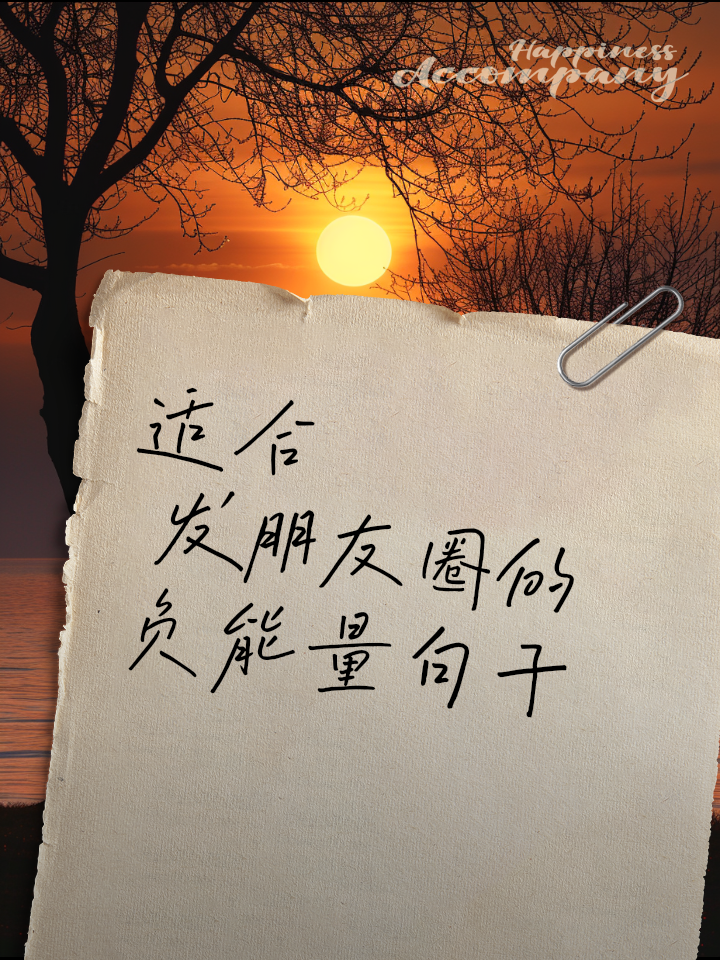 Happiness
Accompany
适合
发朋友圈的
负能量句子